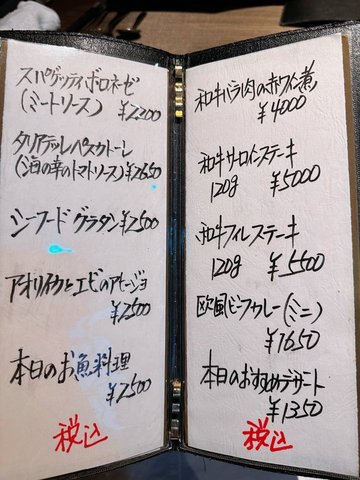 スパゲッティボロネーゼ
(ミートソース) ¥2200
タリアテッレペスカトーレ
(海の幸のトマトソース) ¥2650
シーフードグラタン ¥2500
アオリイカとエビのアヒージョ
¥2500
本日のお魚料理
¥2500
税込
和牛バラ肉の赤ワイン煮
¥4000
和牛サーロインステーキ
120g ¥5000
和牛フィレステーキ
120g ¥5500
欧風ビーフカレー(ミニ)
¥1650
本日のおすすめデザート
¥1350
税込